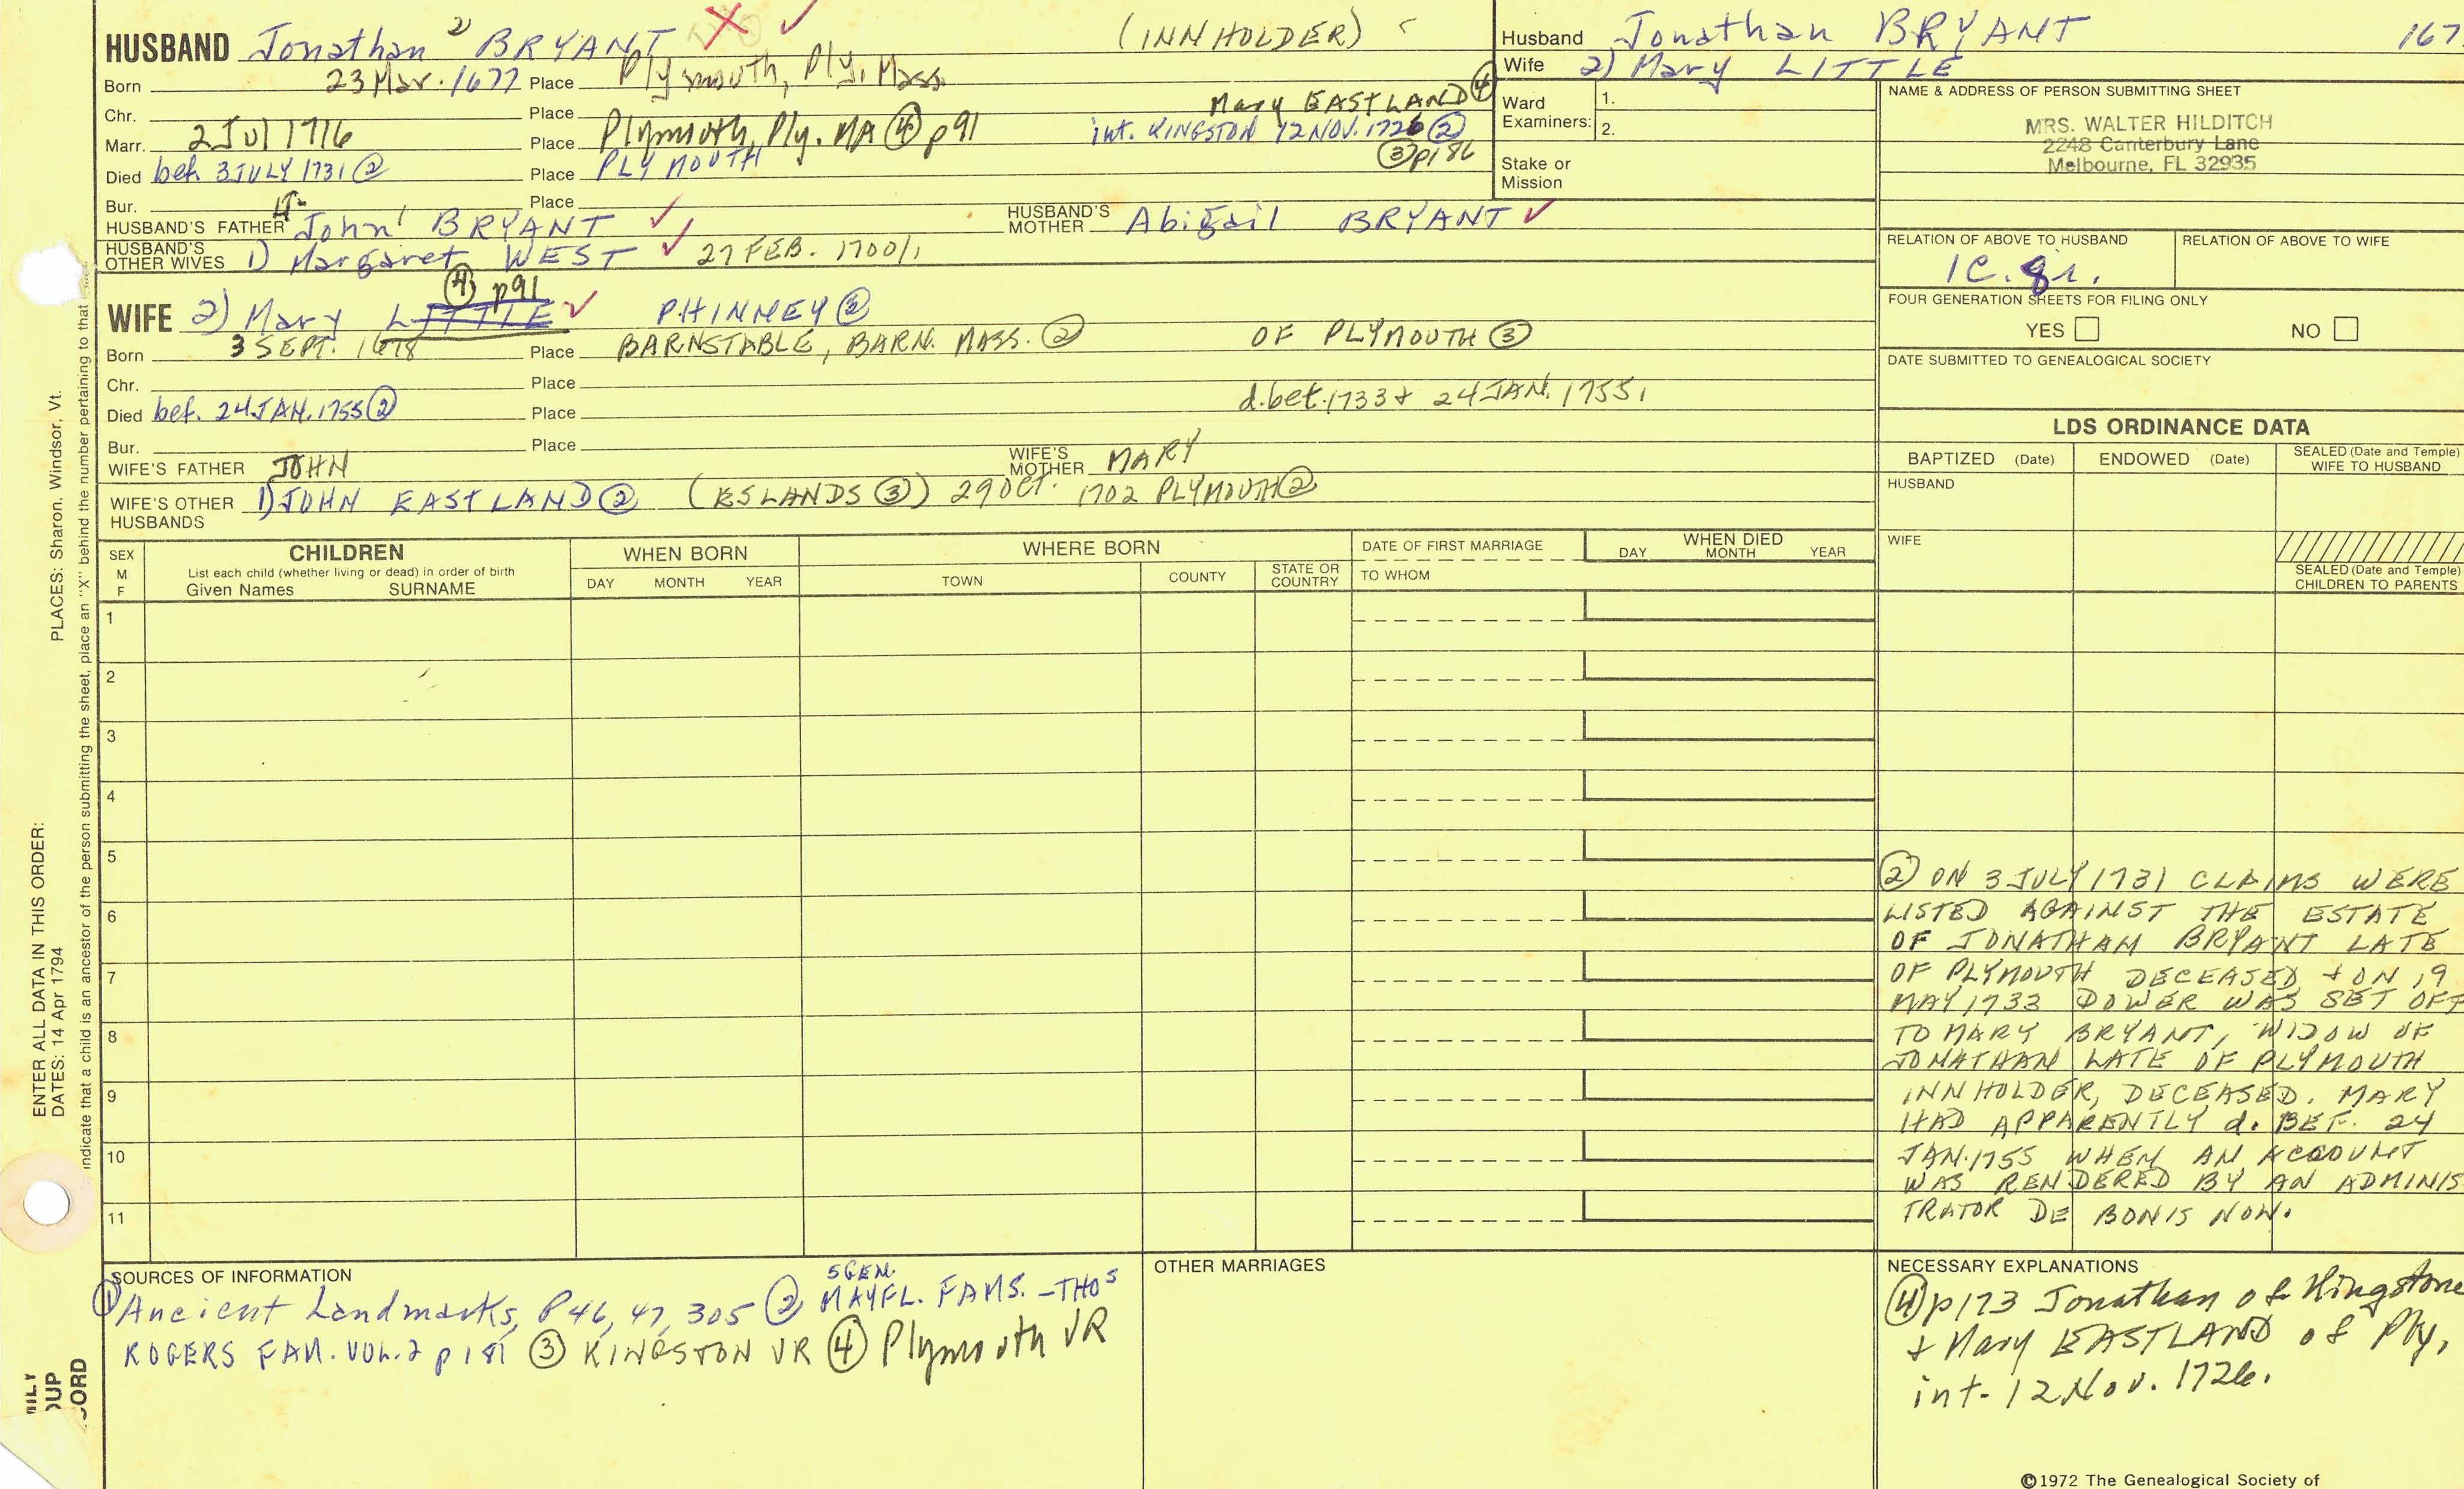 HUSBAND Jonathan 2 BRYANT X ✓ (INNHOLDER)
Born 23 Mar. 1677 Place Plymouth, Ply, Mass.
Chr. Place Mary EASTLAND ④
Marr. 2 Jul 1716 Place Plymouth, Ply. MA ④ p91 int. KINGSTON 12 NOV. 1726 ②
③ p186
Died bef. 3 JULY 1731 ② Place PLYMOUTH
Bur. Place
HUSBAND'S FATHER Lt. John 1 BRYANT ✓ HUSBAND'S MOTHER Abigail BRYANT ✓
HUSBAND'S OTHER WIVES 1) Margaret WEST ✓ 27 FEB. 1700/1
④ p91
WIFE 2) Mary LITTLE ✓ PHINNEY ②
Born 3 SEPT. 1678 Place BARNSTABLE, BARN. MASS. ② OF PLYMOUTH ③
Chr. Place
d. bet. 1733 + 24 JAN. 1755.
Died bef. 24 JAN. 1755 ② Place
Bur. Place
WIFE'S FATHER JOHN WIFE'S MOTHER MARY
WIFE'S OTHER HUSBANDS 1) JOHN EASTLAND ② (ESLANDS ③) 29 OCT. 1702 PLYMOUTH ②
Husband Jonathan BRYANT 167
Wife 2) Mary LITTLE
Ward Examiners: 1.
2.
Stake or Mission
NAME & ADDRESS OF PERSON SUBMITTING SHEET
MRS. WALTER HILDITCH
2248 Canterbury Lane
Melbourne, FL 32935
RELATION OF ABOVE TO HUSBAND RELATION OF ABOVE TO WIFE
1C. gr.
FOUR GENERATION SHEETS FOR FILING ONLY
YES NO
DATE SUBMITTED TO GENEALOGICAL SOCIETY
LDS ORDINANCE DATA
BAPTIZED (Date) ENDOWED (Date) SEALED (Date and Temple) WIFE TO HUSBAND
HUSBAND
WIFE
SEALED (Date and Temple) CHILDREN TO PARENTS
SEX M F
CHILDREN
List each child (whether living or dead) in order of birth
Given Names SURNAME
WHEN BORN
DAY MONTH YEAR
WHERE BORN
TOWN COUNTY STATE OR COUNTRY
DATE OF FIRST MARRIAGE
TO WHOM
WHEN DIED
DAY MONTH YEAR
1
2
3
4
5
6
7
8
9
10
11
② ON 3 JULY 1731 CLAIMS WERE
LISTED AGAINST THE ESTATE
OF JONATHAN BRYANT LATE
OF PLYMOUTH DECEASED + ON 19
MAY 1733 DOWER WAS SET OFF
TO MARY BRYANT, WIDOW OF
JONATHAN LATE OF PLYMOUTH
INNHOLDER, DECEASED. MARY
HAD APPARENTLY d. BEF. 24
JAN. 1755 WHEN AN ACCOUNT
WAS RENDERED BY AN ADMINIS
TRATOR DE BONIS NON.
SOURCES OF INFORMATION
5 GEN.
① Ancient Landmarks, P46, 47, 305 ② MAYFL. FAMS. - THOS
ROGERS FAM. VOL. 2 p181 ③ KINGSTON VR ④ Plymouth VR
OTHER MARRIAGES
NECESSARY EXPLANATIONS
④ p173 Jonathan of Kingstone
+ Mary EASTLAND of Ply,
int. 12 Nov. 1726.
©1972 The Genealogical Society of
ENTER ALL DATA IN THIS ORDER:
DATES: 14 Apr 1794 PLACES: Sharon, Windsor, Vt.
indicate that a child is an ancestor of the person submitting the sheet, place an "X" behind the number pertaining to that